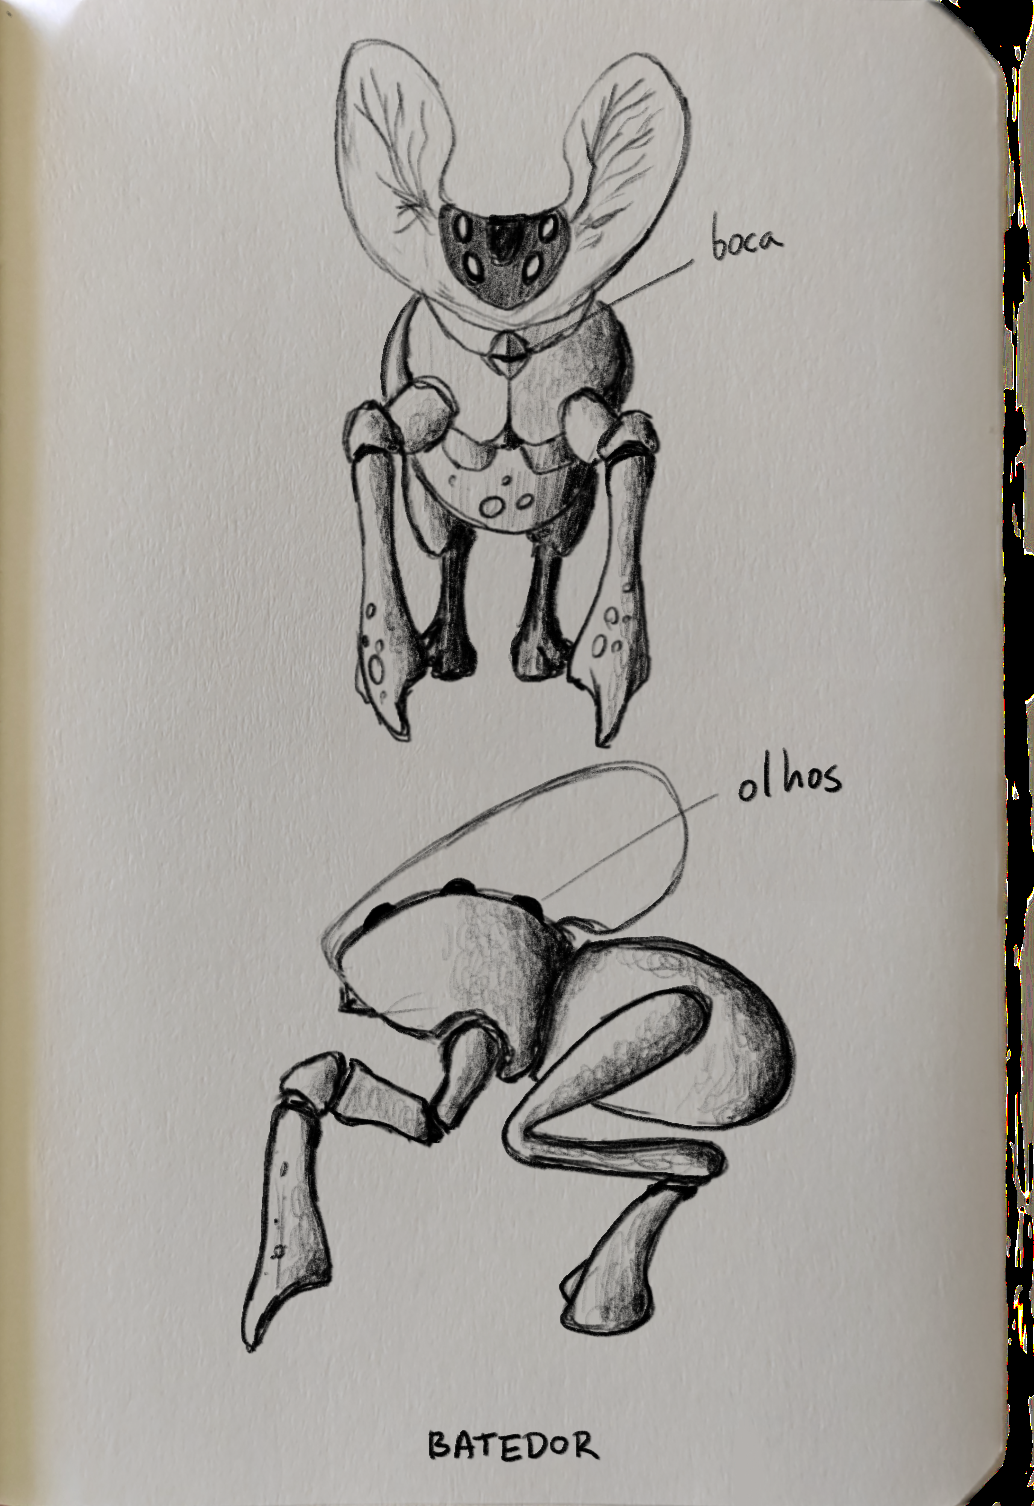 boca
olhos
BATEDOR